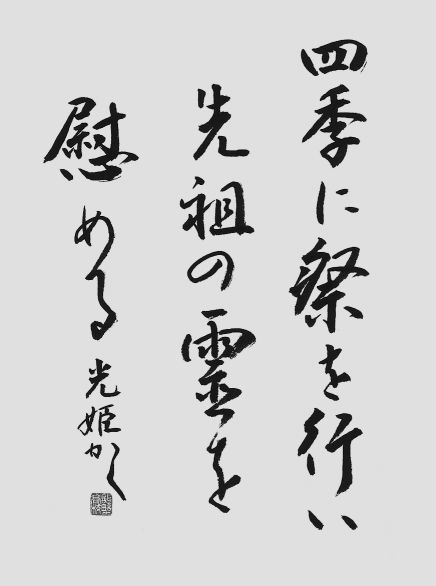 四季に祭を行い
先祖の霊を
慰める
光姫かく